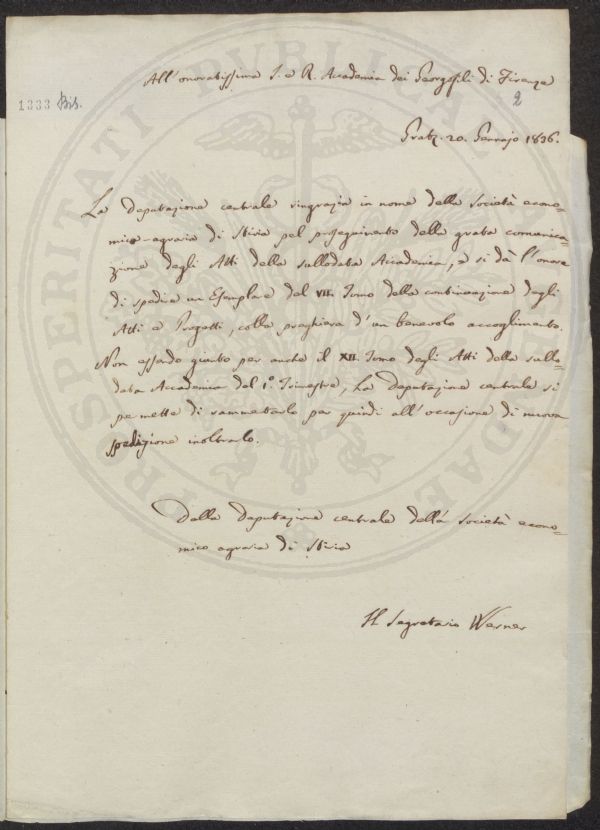 All'onoratissima I. e R. Accademia dei Georgofili di Firenze
1333 Bis.
2
Gratz. 20. Gennajo 1836.
La Deputazione centrale ringrazia in nome della Società econo-
mico-agraria di Stiria pel proseguimento della grata comunica-
zione degli Atti della sullodata Accademia, e si dà l'onore
di spedire un Esemplare del VII. Tomo della continuazione degli
Atti e Progetti, colla preghiera d'un benevolo accoglimento.
Non essendo giunto per anche il XII. Tomo degli Atti della sullo-
data Accademia del 1.º Trimestre, la Deputazione centrale si
permette di rammentarlo per quindi all'occasione di nuova
spedizione inoltrarlo.
Dalla Deputazione centrale della Società econo-
mico agraria di Stiria
Il Segretario Werner
PROSPERITATI PUBLICAE